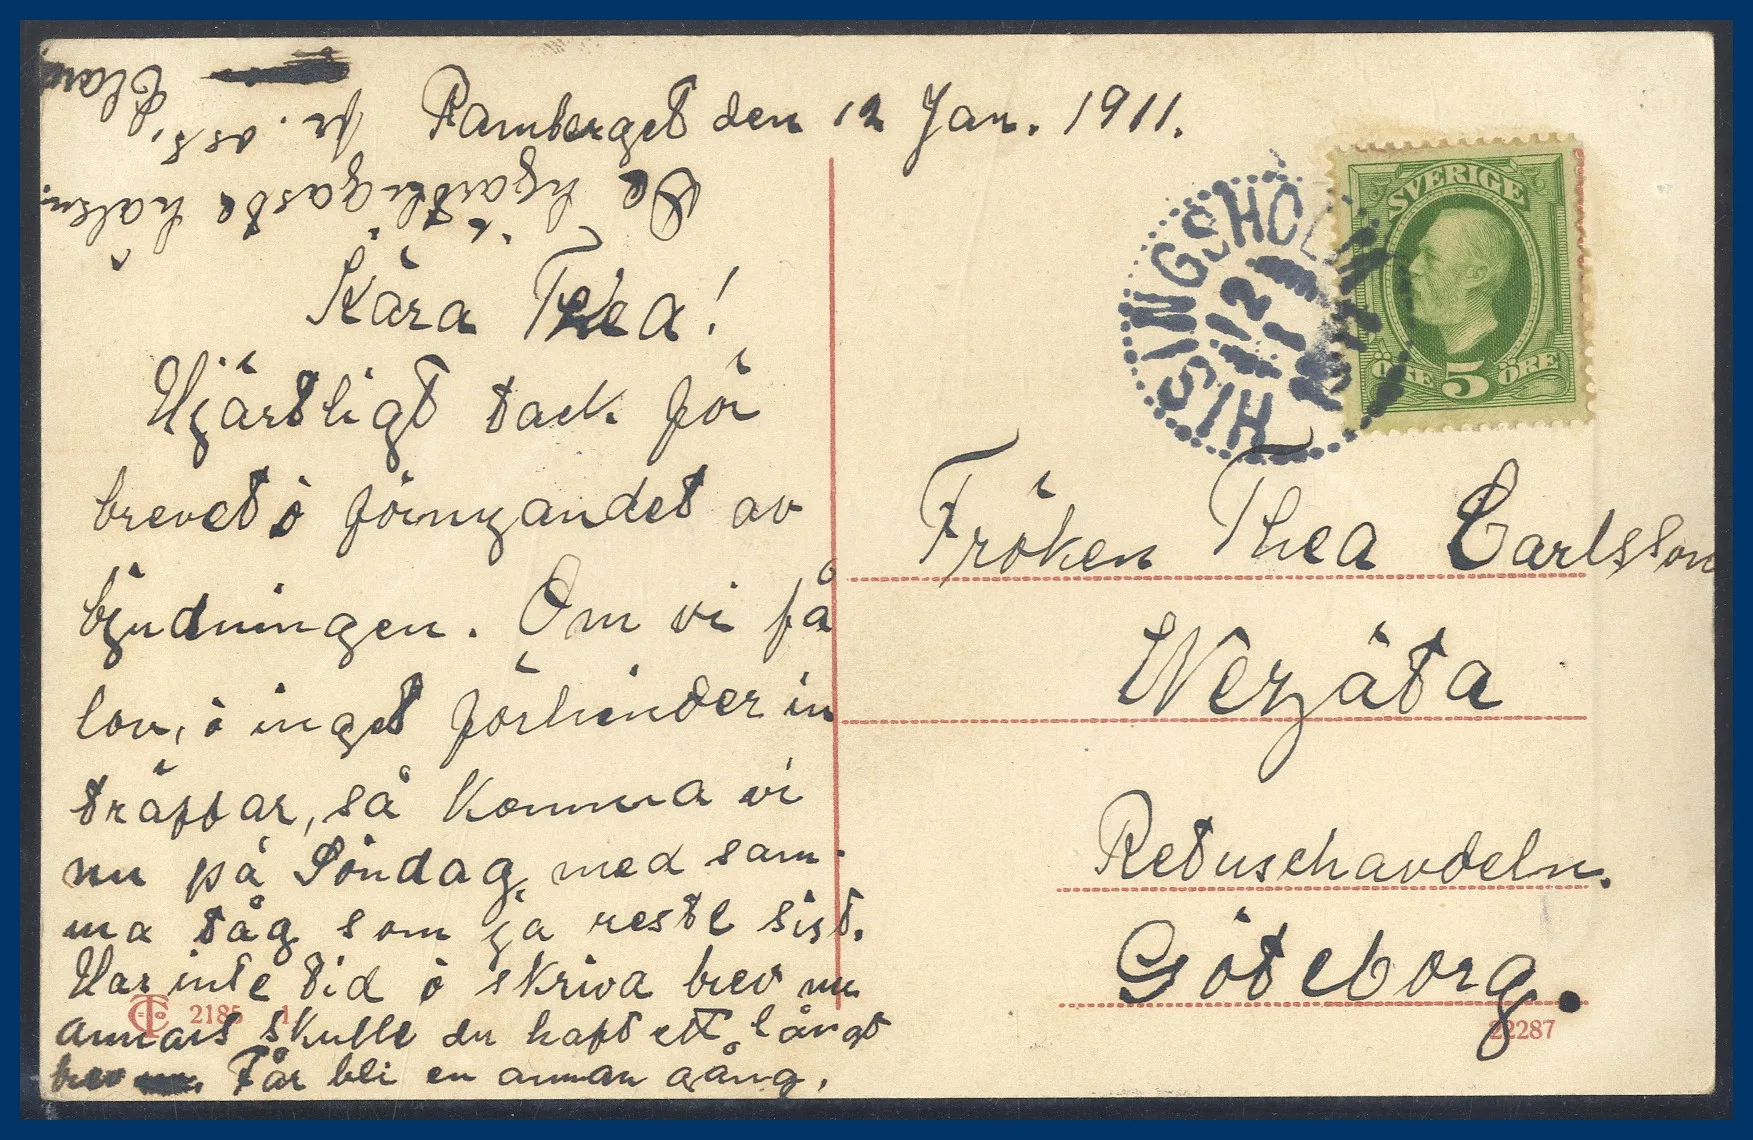 Ramberget den 12 Jan. 1911.
Kära Thea!
Hjärtligt tack för
brevet ò förnyandet av
bjudningen. Om vi få
lov, ò inget förhinder in
träffar, så komma vi
nu på Söndag, med sam-
ma tåg som ja reste sist.
Har inte tid ò skriva brev nu
annars skulle du haft ett långt
brev. Får bli en annan gång.
De hjärtligaste hälsn.
fr. oss,
Clara
SVERIGE
ÖRE 5 ÖRE
HISINGSHOLM
12 1
Fröken Thea Carlsson
Wezäta
Retuschavdeln.
Göteborg.
2185 1
22287